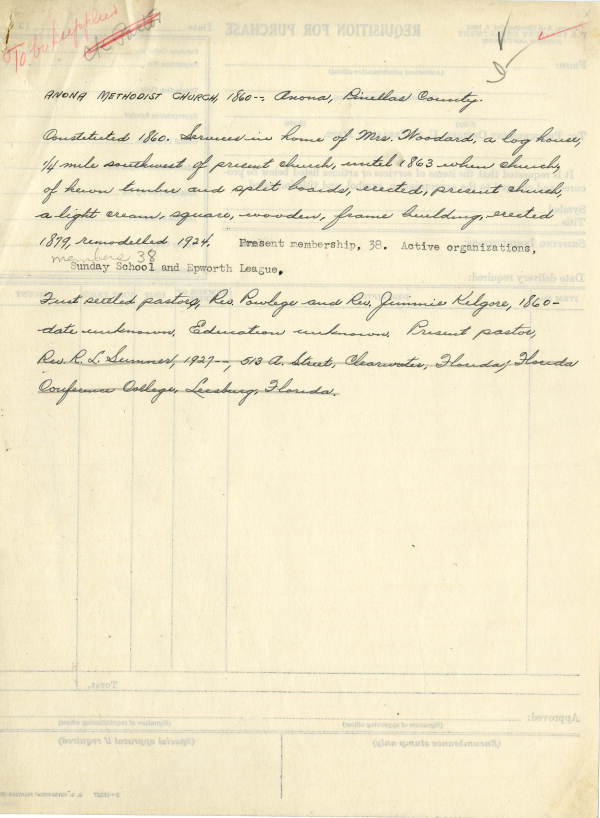 To be supplied
REQUISITION FOR PURCHASE
ANONA METHODIST CHURCH, 1860--; Anona, Pinellas County.
Constituted 1860. Services in home of Mrs. Woodard, a log house,
1/4 mile southwest of present church, until 1863 when church,
of hewn timber and split boards, erected, present church,
a light cream, square, wooden, frame building, erected
1879, remodelled 1924. Present membership, 38. Active organizations,
members 38
Sunday School and Epworth League.
First settled pastors, Rev. Powlege and Rev. Jimmie Kilgore, 1860-
date unknown. Education unknown. Present pastor,
Rev. R. L. Sumner, 1927--, 513 A. Street, Clearwater, Florida; Florida
Conference College, Leesburg, Florida.
TOTAL
Approved:
(Signature of requisitioning officer)
(Signature of approving officer)
(Special approval if required)
(Encumbrance stamp only)